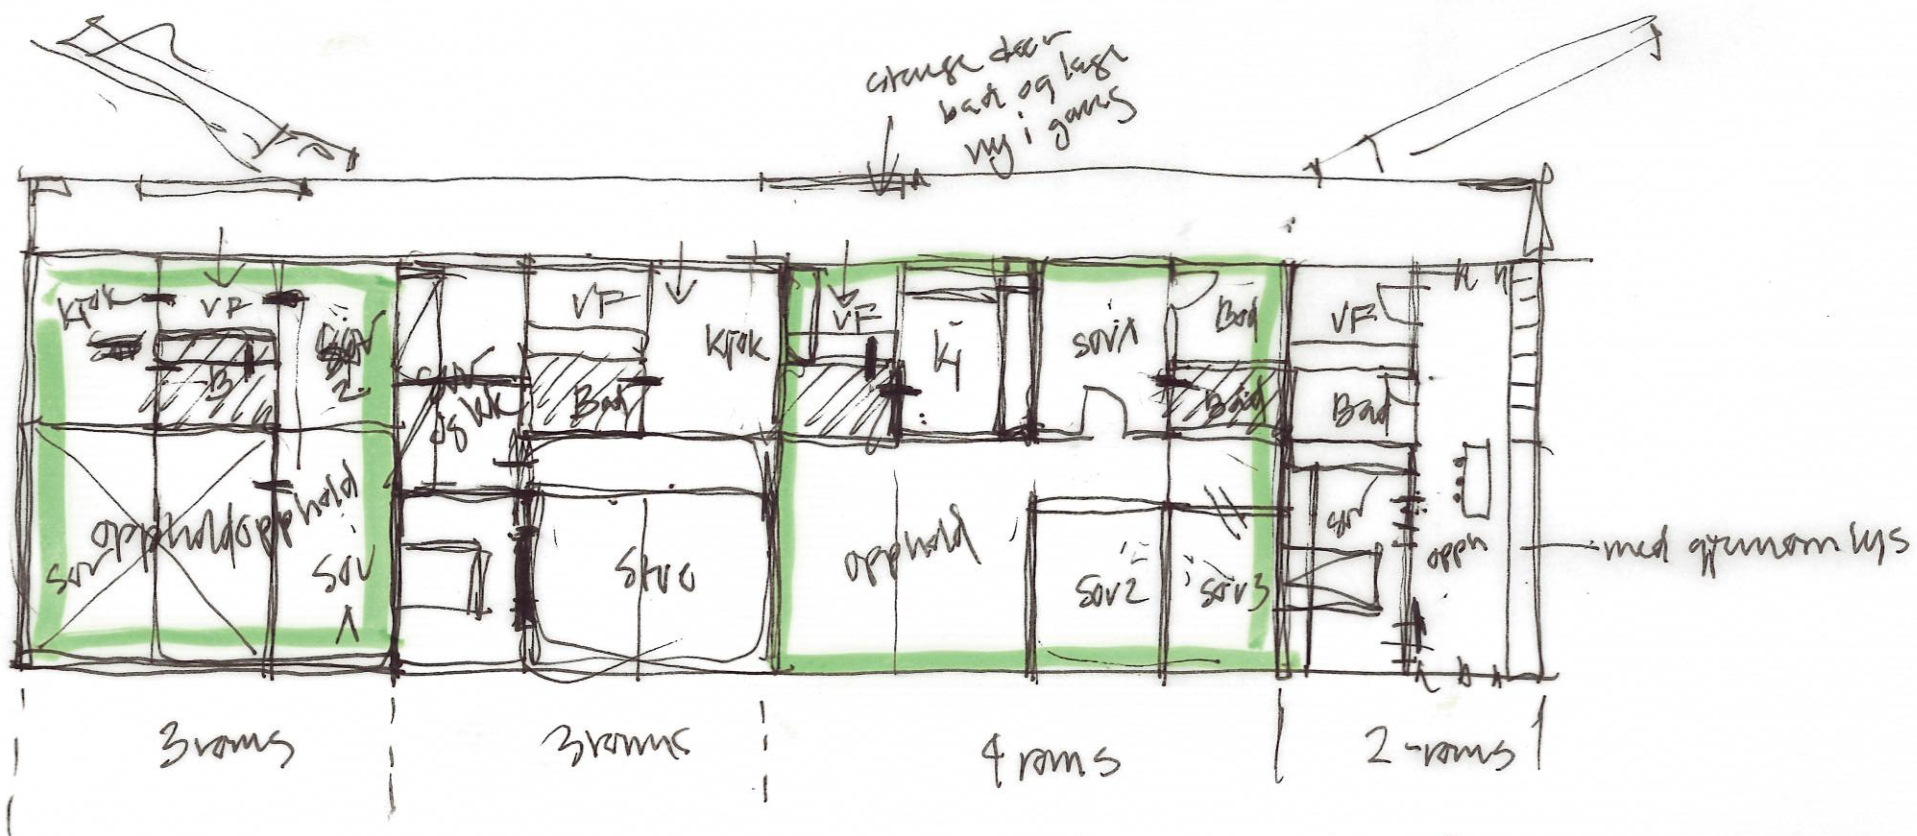 stenge dør
bad og lage
ny i gang
Kjøk
VF
B
Sov
2
opphold
opphold
sov
Sov
1
VF
Kjøk
Bad
Stue
VF
Kj
sov1
Bod
Bad
opphold
Sov2
Sov3
VF
Bad
sov
opph
med gjennomlys
3 roms
3 roms
4 roms
2-roms